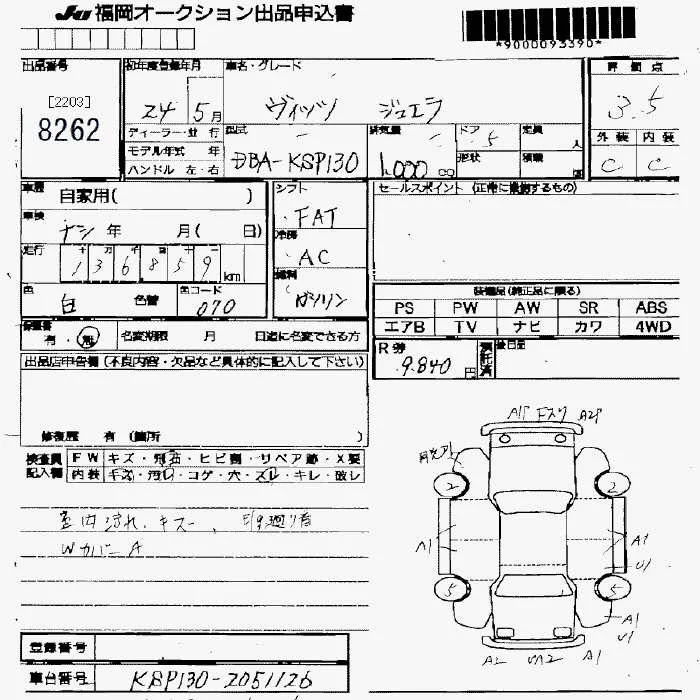 JU 福岡オークション出品申込書
*9000093390*
出品番号 初年度登録年月 車名・グレード 評価点
[2203]
8262
24 5月 ヴィッツ ジュエラ 3.5
ディーラー・並行 型式 排気量 ドア 定員 外装 内装
モデル年式 年 DBA-KSP130 1,000cc 5 人 C C
ハンドル 左・右 形状 積載
車歴 自家用( ) シフト FAT セールスポイント (正常に装備するもの)
車検 ナシ 年 月( 日) 冷房 AC
走行 136859km 燃料 ガソリン
色 白 色替 色コード 070
装備品(純正品に限る)
PS PW AW SR ABS
エアB TV ナビ カワ 4WD
有・無 名変期限 月 日迄に名変できる方
R券 9.840円 預託済 後日品
出品店申告欄(不良内容・欠品など具体的に記入して下さい)
修復歴 有(箇所 )
検査員記入欄 FW キズ・飛石・ヒビ割・リペア跡・X要
内装 キズ・汚レ・コゲ・穴・スレ・キレ・破レ
室内汚れ、キズ
Wカバー A
A1 Fスリ A2
2 2
A1 A1
U1
5 5
A1
U1
A2 UA2 A1
登録番号
車台番号 KSP130-2051126